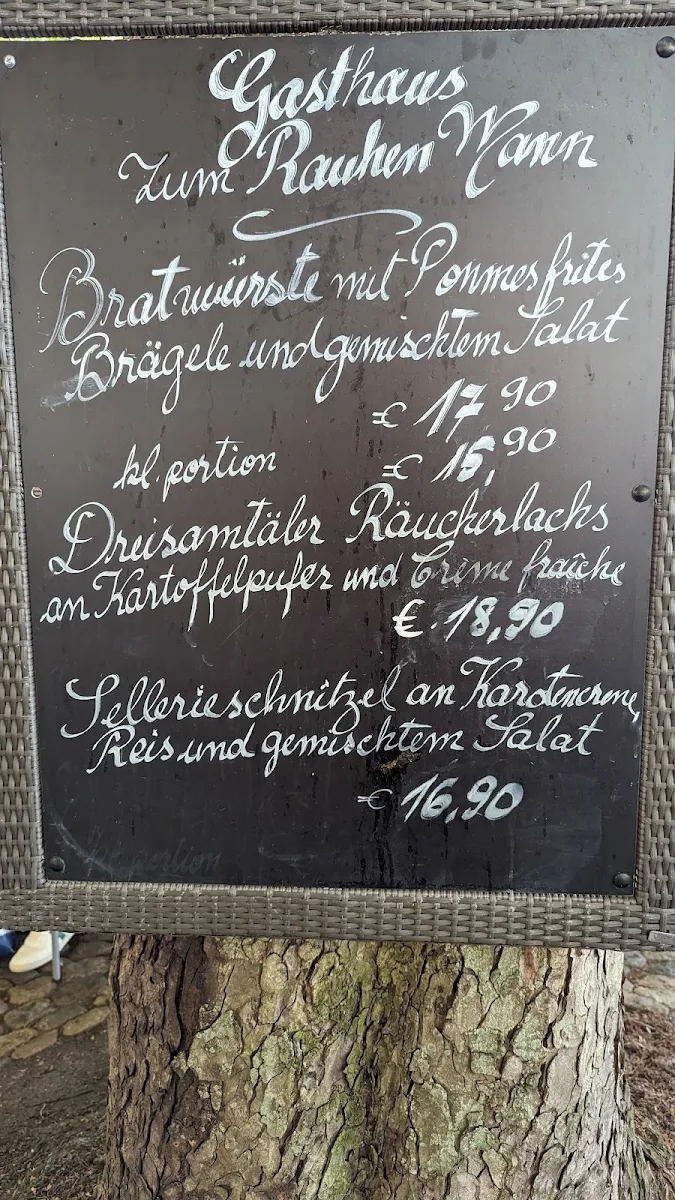 Gasthaus
Zum Rauhen Mann
Bratwürste mit Pommes frites
Brägele und gemischtem Salat
€ 17,90
kl. portion € 15,90
Dreisamtäler Räucherlachs
an Kartoffelpufer und Crème fraîche
€ 18,90
Sellerieschnitzel an Karotencreme,
Reis und gemischtem Salat
€ 16,90
kl. portion